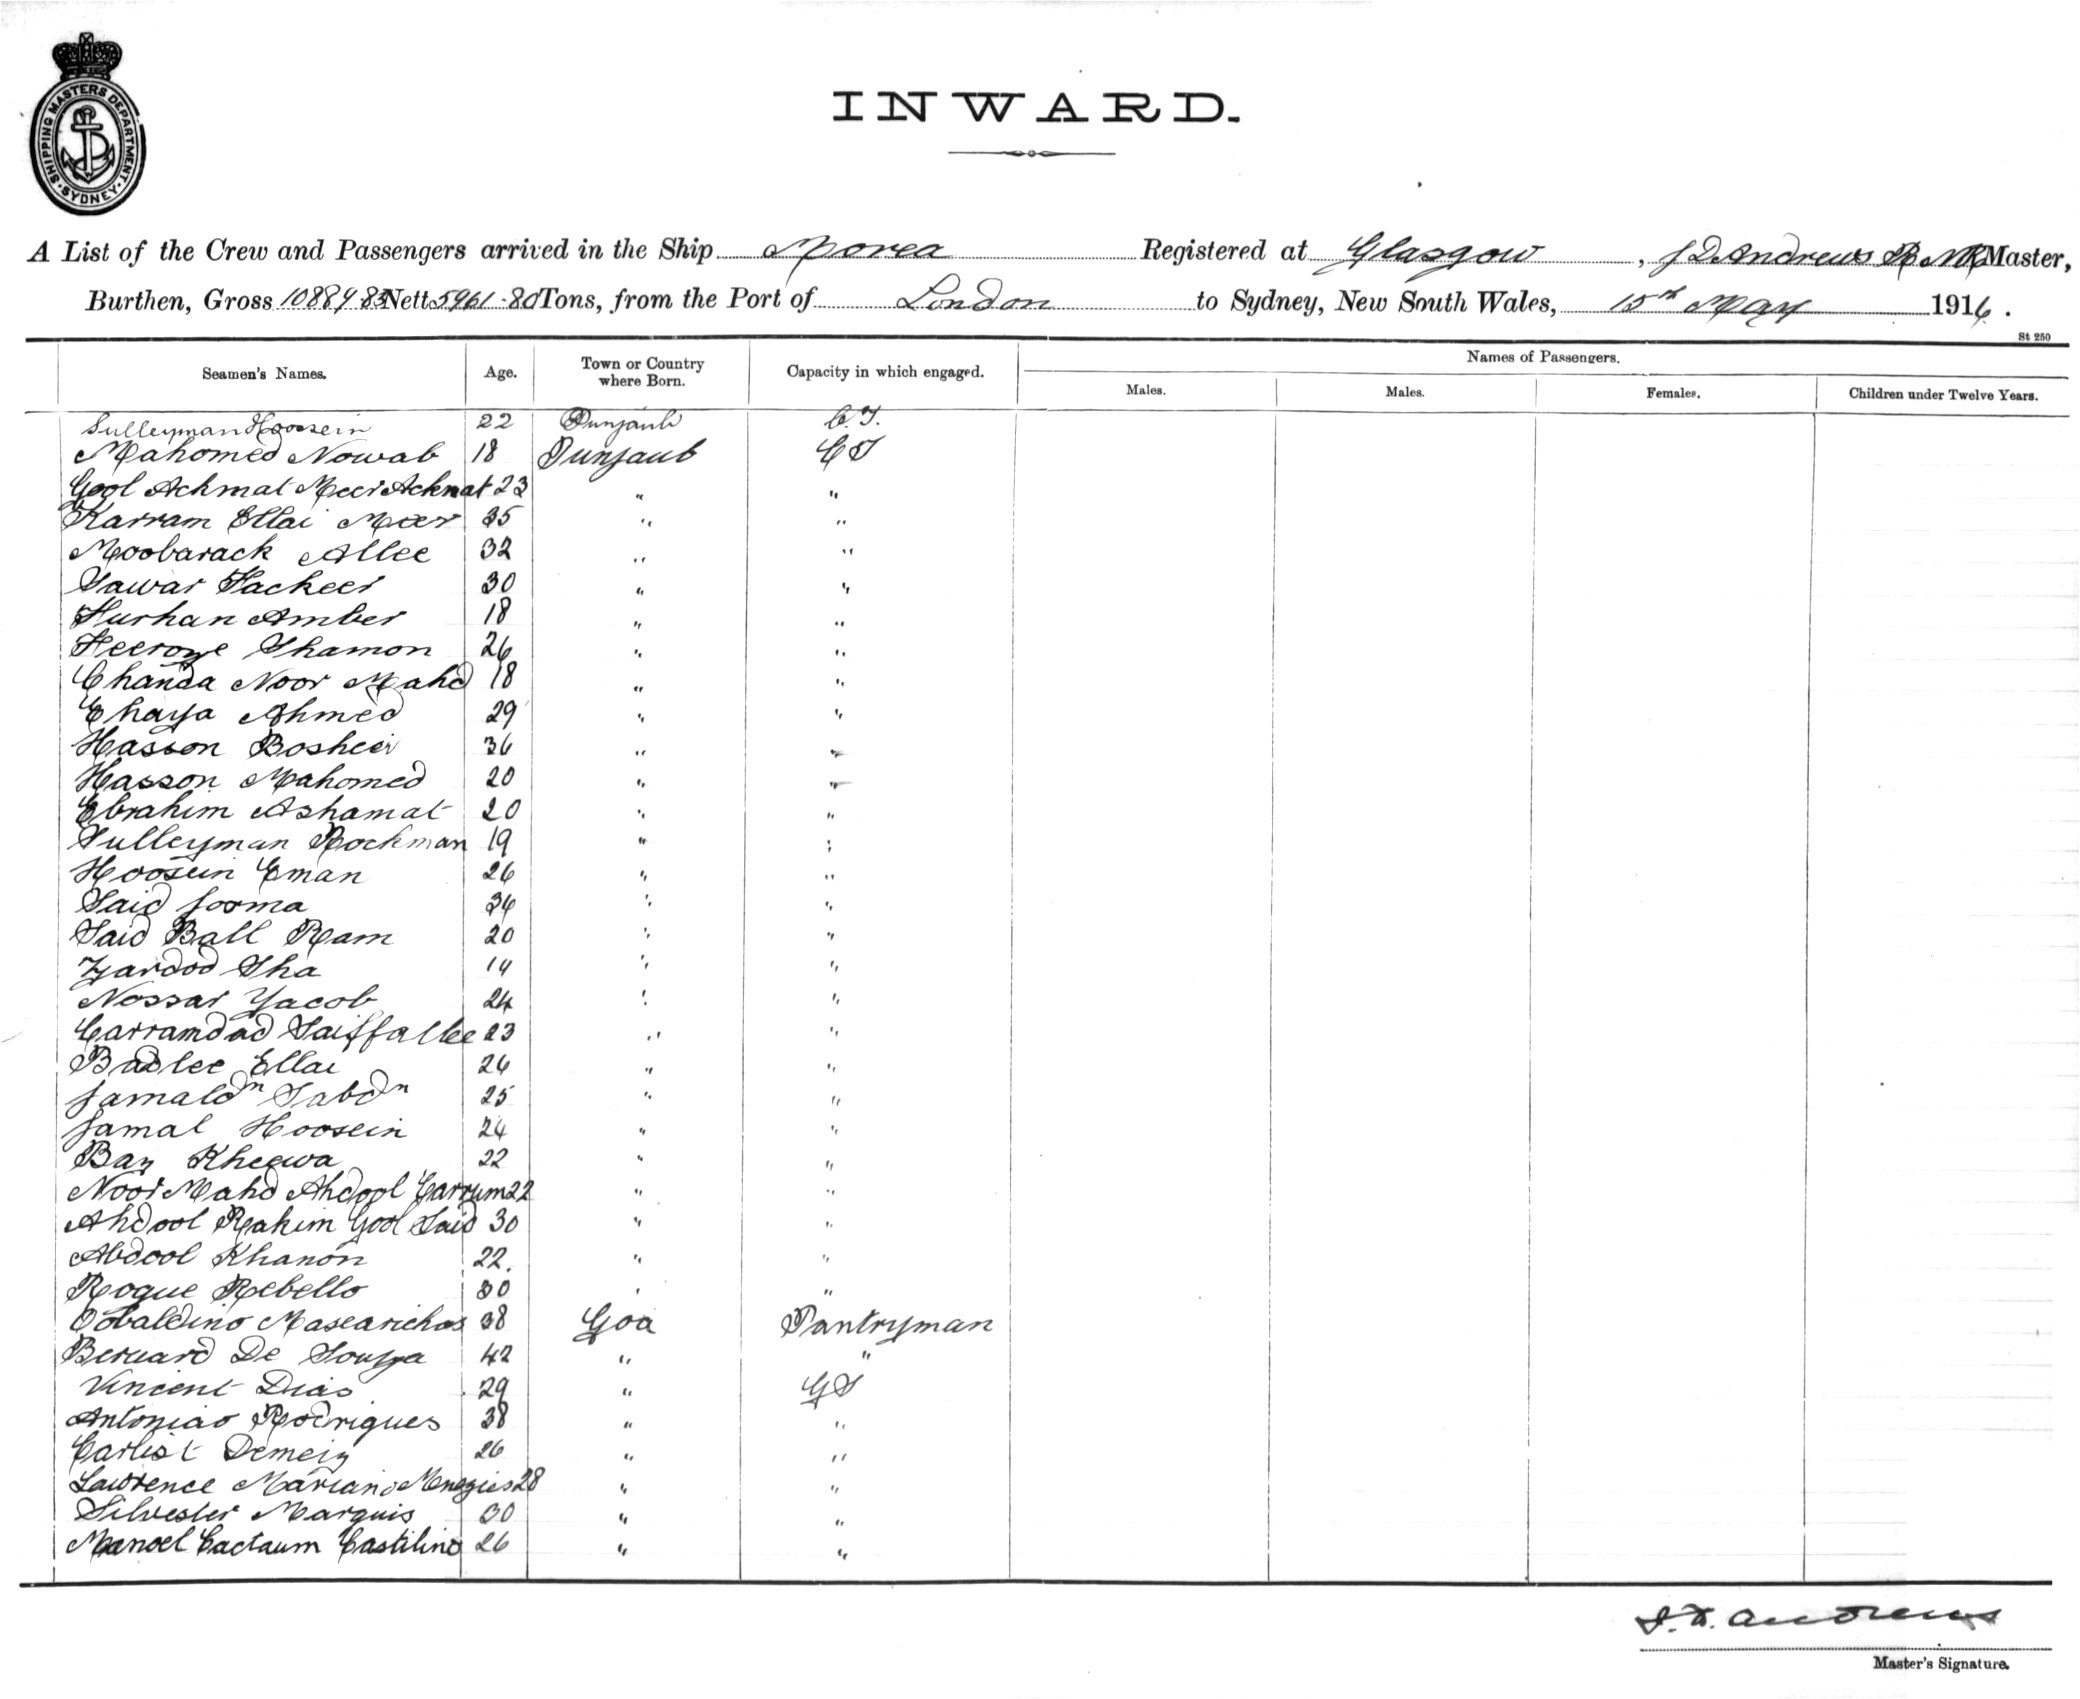 SHIPPING MASTERS DEPARTMENT · SYDNEY ·
INWARD.
A List of the Crew and Passengers arrived in the Ship Morea Registered at Glasgow, J D Andrews R.N.R Master,
Burthen, Gross 10889.83 Nett 5961.80 Tons, from the Port of London to Sydney, New South Wales, 15th May 1916.
St 250
Seamen's Names. Age. Town or Country where Born. Capacity in which engaged. Names of Passengers.
Males. Males. Females. Children under Twelve Years.
Sulleyman Hoosein 22 Punjaub C.T.
Mahomed Nowab 18 Punjaub CT
Gool Achmat Meer Achmat 23 " "
Karram Ellai Meer 35 " "
Moobarack Allee 32 " "
Sawar Fackeer 30 " "
Furhan Amber 18 " "
Feeroze Shamon 26 " "
Chanda Noor Mahd 18 " "
Ehaya Ahmed 29 " "
Hasson Bosheer 36 " "
Hasson Mahomed 20 " "
Ebrahim Ashamat 20 " "
Sulleyman Rockman 19 " "
Hoosein Eman 26 " "
Said Jooma 34 " "
Said Ball Ram 20 " "
Zardod Sha 19 " "
Nossar Yacob 24 " "
Carramdad Saiffallee 23 " "
Badlee Ellai 26 " "
Jamaldn Sabdn 25 " "
Jamal Hoosein 24 " "
Baz Kheewa 22 " "
Noor Mahd Ahdool Carrum 22 " "
Ahdool Rahim Gool Said 30 " "
Abdool Khanon 22. " "
Roque Rebello 30 " "
Oobaldino Masearichas 38 Goa Pantryman
Bernard De Souza 42 " "
Vincent Dias 29 " GS
Antoniao Rodrigues 38 " "
Carlist Demeiz 26 " "
Lawrence Mariano Menezies 28 " "
Silvester Marquis 30 " "
Manoel Caetaum Castilino 26 " "
J. D. Andrews
Master's Signature.